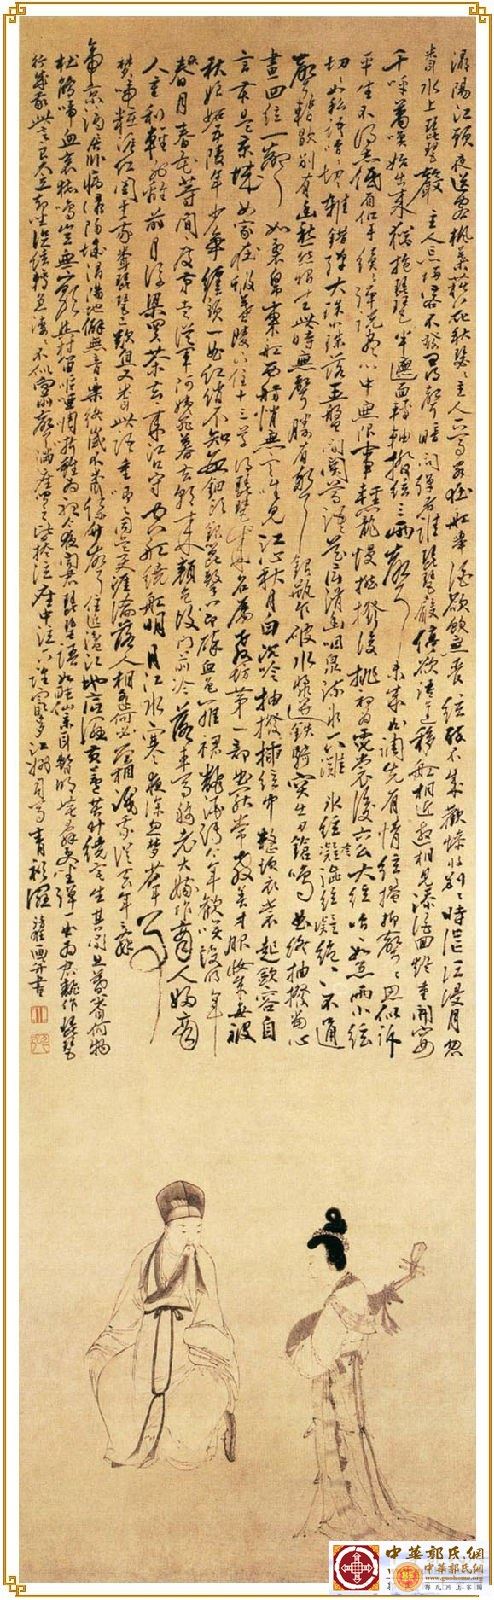 潯陽江頭夜送客楓葉荻花秋瑟瑟主人下馬客在船舉酒欲飲無管絃醉不成歡慘將別別時茫茫江浸月忽
聞水上琵琶聲主人忘歸客不發尋聲暗問彈者誰琵琶聲停欲語遲移船相近邀相見添酒回燈重開宴
千呼萬喚始出來猶抱琵琶半遮面轉軸撥絃三兩聲未成曲調先有情絃絃掩抑聲聲思似訴
平生不得意低眉信手續續彈說盡心中無限事輕攏慢撚撥復挑初為霓裳後六么大絃嘈嘈如急雨小絃
切切如私語嘈嘈切切錯雜彈大珠小珠落玉盤間關鶯語花底滑幽咽泉流水下灘水泉冷澀絃凝絕凝絕不通
聲暫歇別有幽愁暗恨生此時無聲勝有聲銀瓶乍破水漿迸鐵騎突出刀鎗鳴曲終抽撥當心
畫四絃一聲如裂帛東船西舫悄無言唯見江心秋月白沉吟抽撥插絃中整頓衣裳起斂容自
言本是京城女家在蝦蟇陵下住十三學得琵琶成名屬教坊第一部曲罷常教善才服妝成每被
秋娘妒五陵年少爭纏頭一曲紅綃不知數鈿頭銀篦擊節碎血色羅裙翻酒污今年歡笑復明年
秋月春風等閒度弟走從軍阿姨死暮去朝來顏色故門前冷落車馬稀老大嫁作商人婦商
人重利輕離別前月浮梁買茶去去來江口守空船繞船明月江水寒夜深忽夢少年事
夢啼粧淚紅闌干我聞琵琶已歎息又聞此語重唧唧同是天涯淪落人相逢何必曾相識我從去年辭
帝京謫居臥病潯陽城地僻無音樂終歲不聞絲竹聲住近湓江地低濕黃蘆苦竹繞宅生其間旦暮聞何物
杜鵑啼血哀猿鳴豈無山歌與村笛嘔啞嘲哳難為聽今夜聞君琵琶語如聽仙樂耳暫明莫辭更坐彈一曲為君翻作琵琶
行感我此言良久立却坐促絃絃轉急淒淒不似向前聲滿座聞之皆掩泣座中泣下誰最多江州司馬青衫濕
清狂畫并書
中華郭氏網
中華郭氏網
www.guohome.org